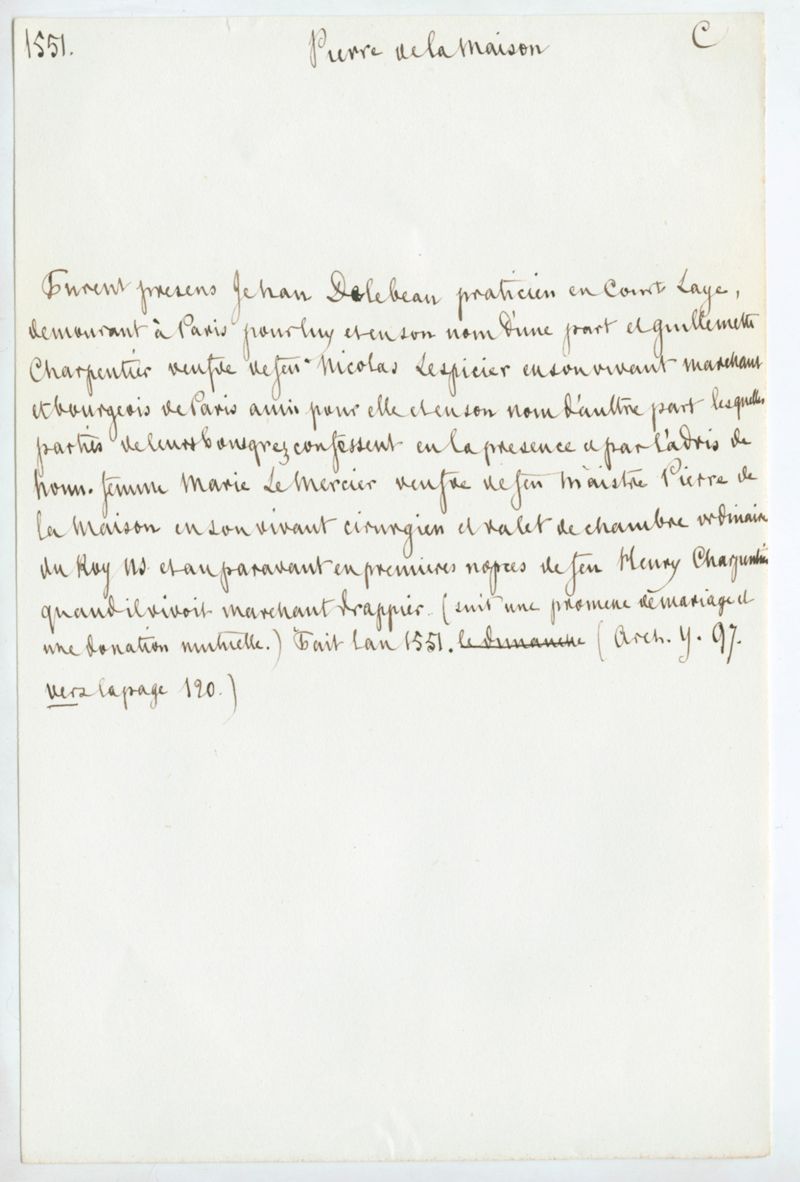 1551. Pierre de la Maison C
Furent presens Jehan Delebeau praticien en Court Laye,
demourant à Paris pour luy et en son nom d'une part et Guillemette
Charpentier veufve de feu Nicolas Lespicier en son vivant marchant
et bourgeois de Paris aussi pour elle et en son nom d'aultre part lesquelles
parties de leurs bons grez confessent en la presence et par l'advis de
honn. femme Marie Le Mercier veufve de feu Maistre Pierre de
la Maison en son vivant cirurgien et valet de chambre ordinaire
du Roy NS. et auparavant en premieres nopces de feu Henry Charpentier
quand il vivoit marchant drappier. (suit une promesse de mariage et
une donation mutuelle.) Fait lan 1551. le dimanche (Arch. Y. 97.
vers la page 120.)